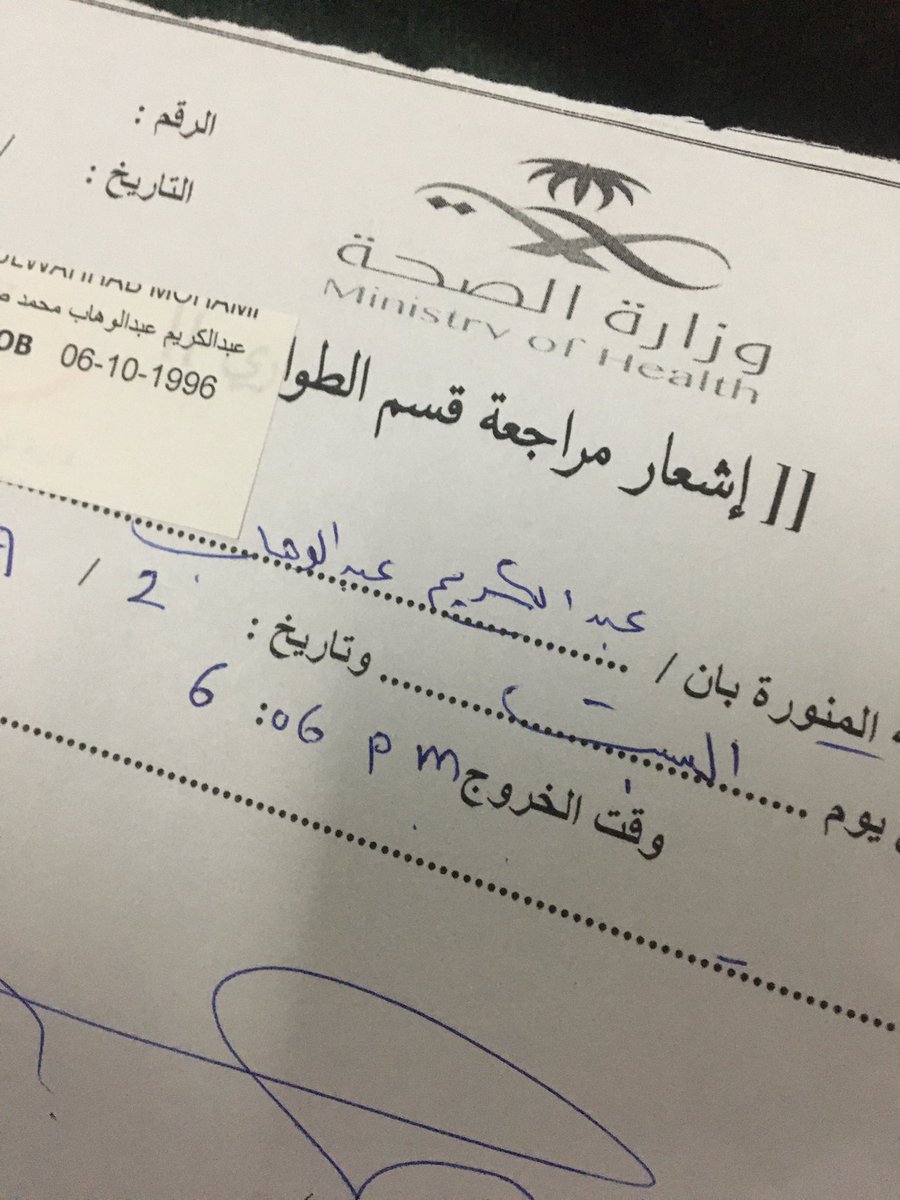 الرقم :
التاريخ :
وزارة الصحة
Ministry of Health
عبدالكريم عبدالوهاب محمد
06-10-1996
[[ إشعار مراجعة قسم الطوا
المنورة بان / عبد الكريم عبدالوهاب
يوم السبت وتاريخ : 2 /
وقت الخروج 6:06 pm